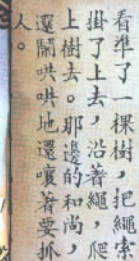 看準了一棵樹，把繩索
掛了上去，沿著繩，爬
上樹去。那邊的和尚，
還鬧哄哄地還嚷著要抓
人。